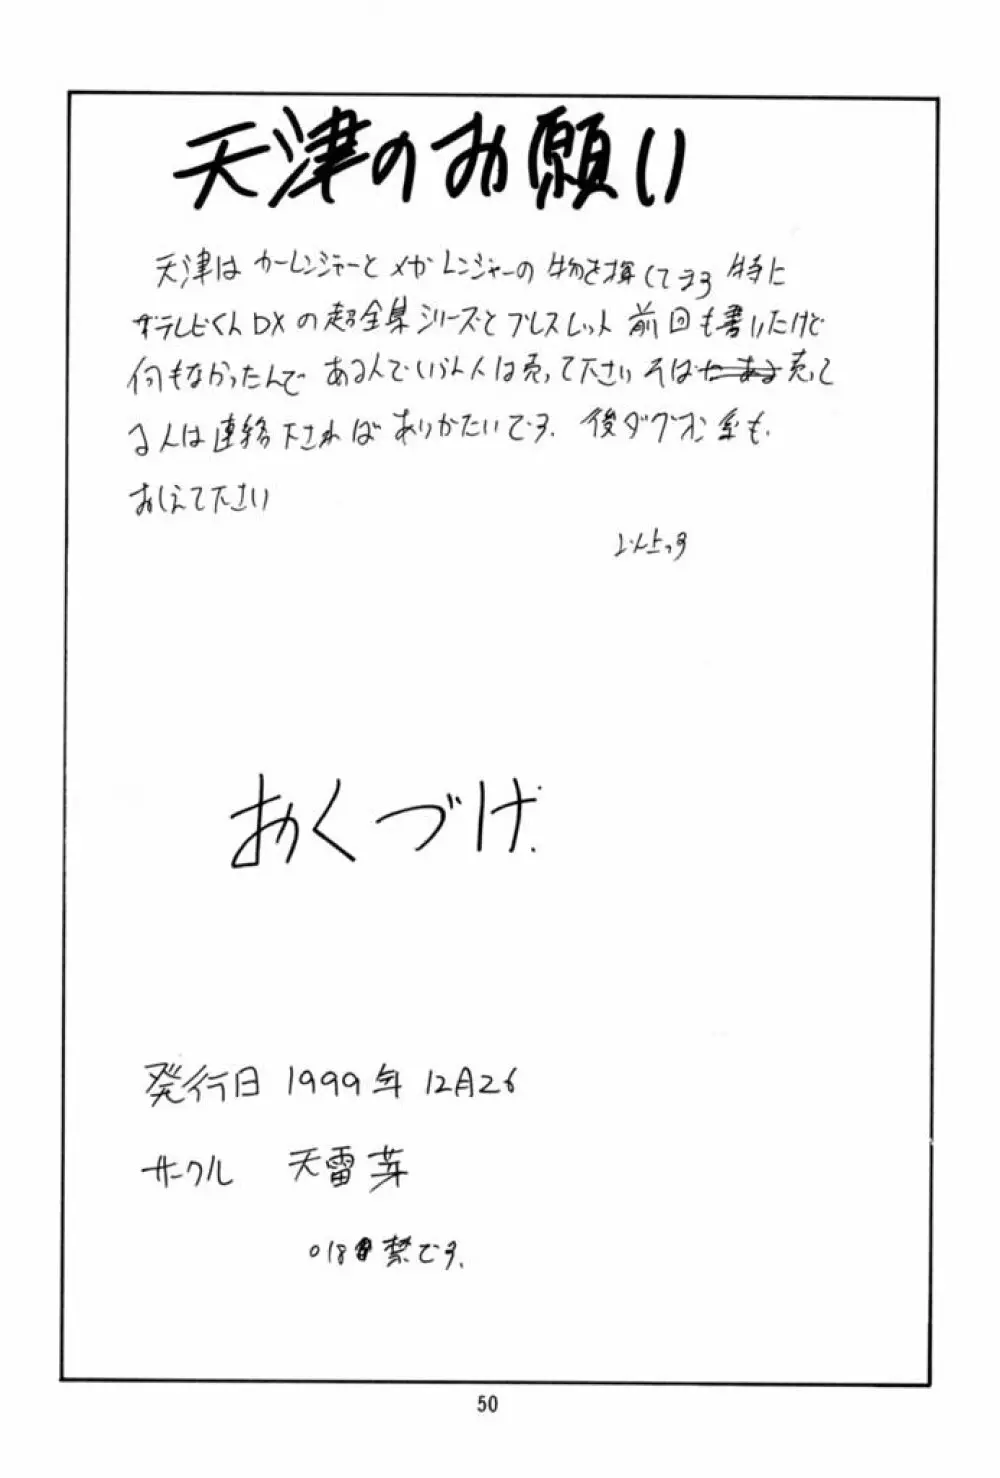 天津のお願い
天津はカーレンジャーとメガレンジャーの物を探してます 特に
ザテレビくんDXの超全集シリーズとブレスレット 前回も書いたけど
何もなかったんで ある人でいらん人は売って下さい そば 売って
る人は連絡下さればありがたいです. 後ダグオン系も.
おしえて下さい
以上っす
おくづけ.
発行日 1999年12月26
サークル 天雷芽
○18禁です.
50